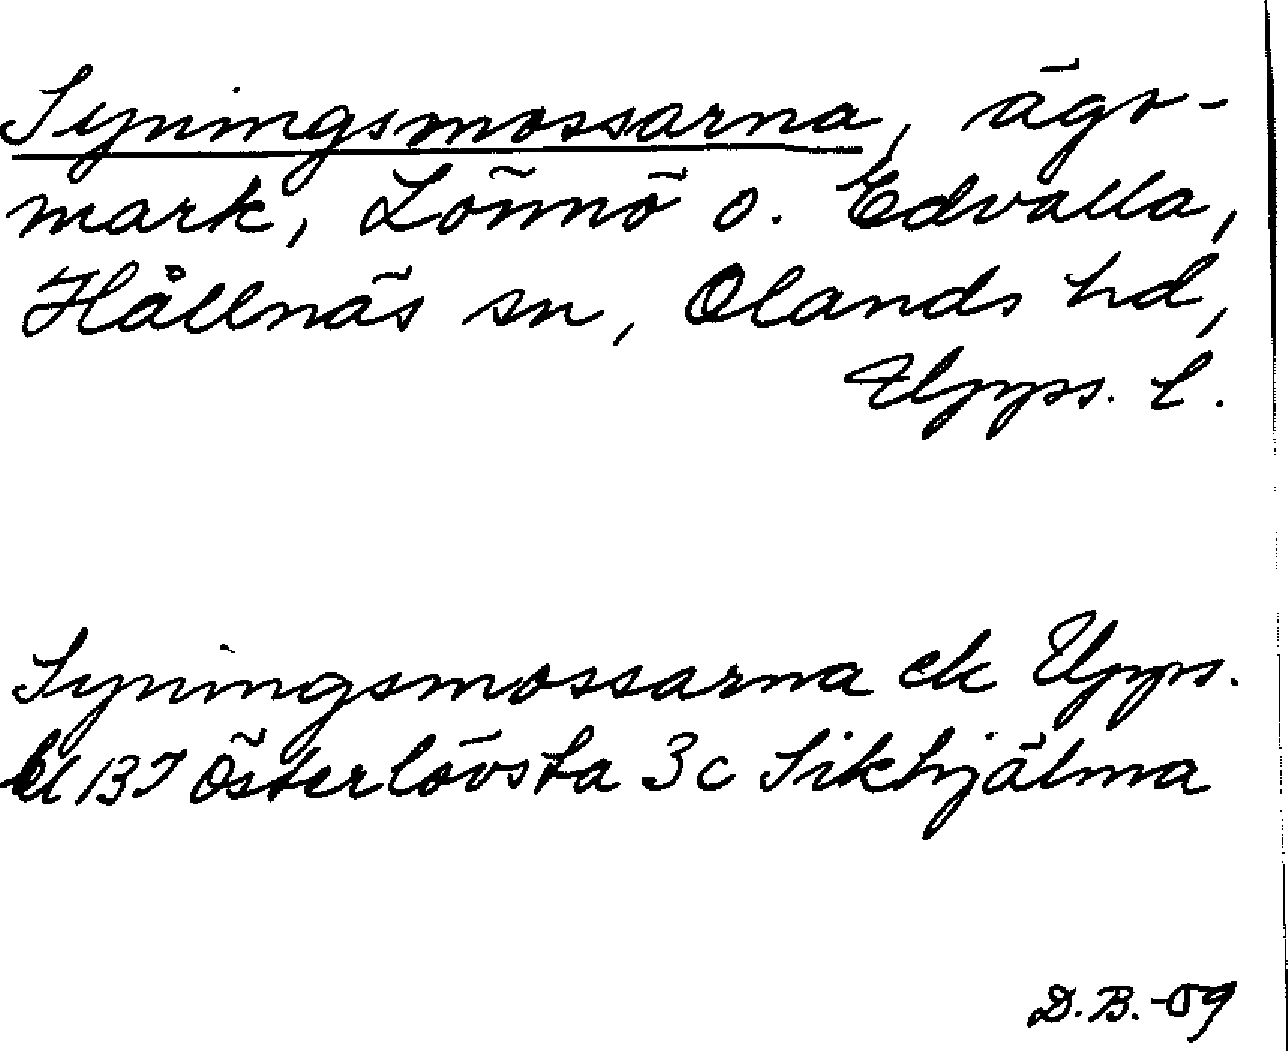 Syningsmossarna, ägo-
mark, Lönnö o. Edvalla,
Hållnäs sn, Olands hd,
Upps. l.
Syningsmossarna ek Upps.
bl 137 Österlövsta 3c Sikhjälma
D.B.-09